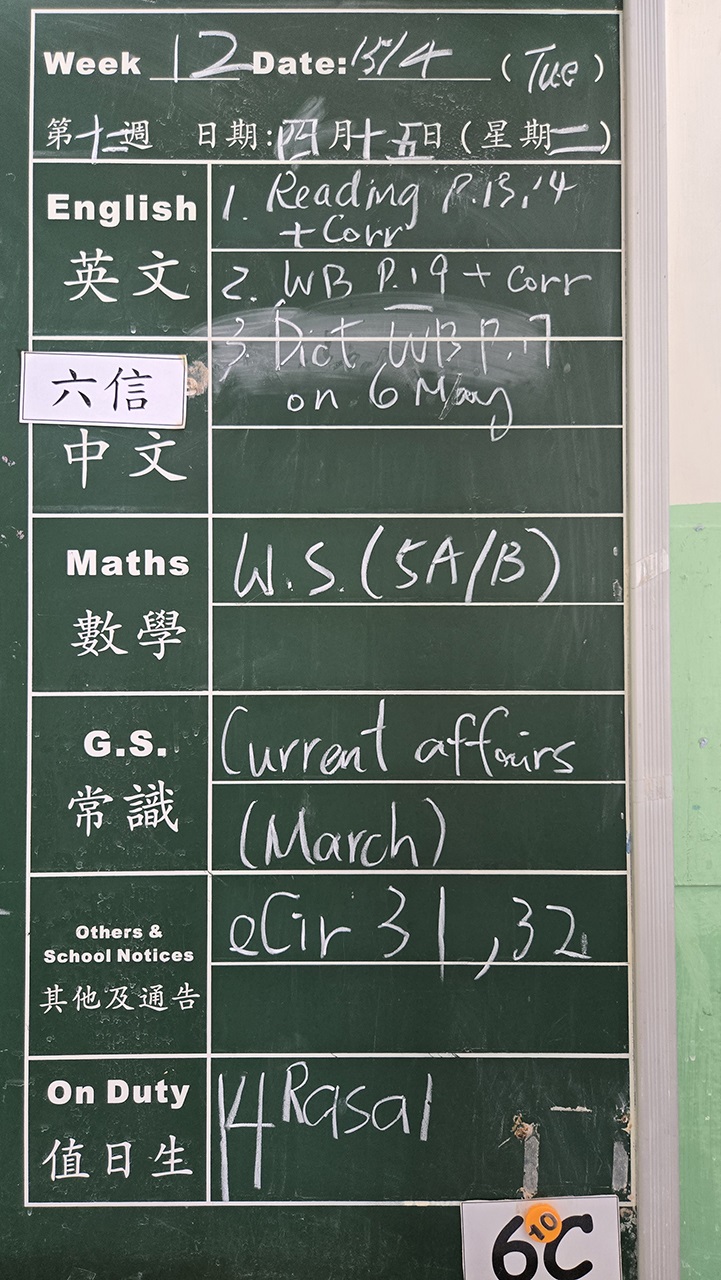 Week 12 Date: 15/4 (Tue)
第十二週 日期:四月十五日(星期二)
English
英文
1. Reading P.13,14
+ Corr
2. WB P.19 + corr
3. Dict WB P.17
on 6 May
六信
中文
Maths
數學
W.S. (5A/B)
G.S.
常識
Current affairs
(March)
Others &
School Notices
其他及通告
eCir 31,32
On Duty
值日生
14 Rasal
6C
10